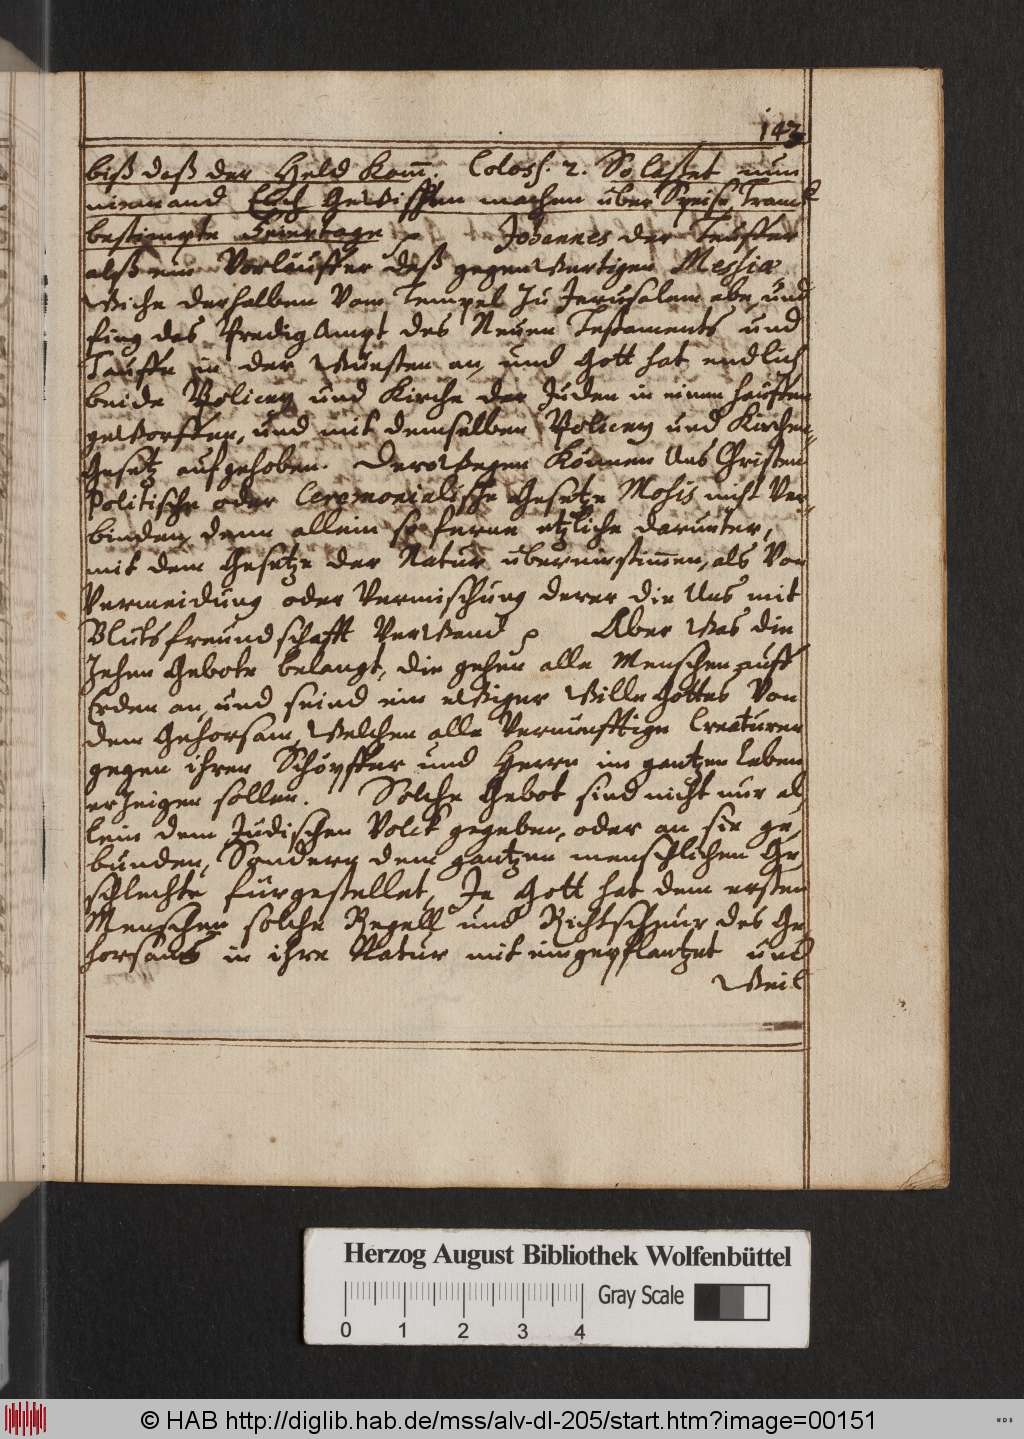 143
biß daß der Held Kom̄. Coloss. 2. So lasset nun
niemand Euch Gewissen machen über Speise, Tranck
bestimpte Feiertage ꝛc Johannes der Teuffer
alß ein Vorläuffer deß gegenwertigen Messiæ
Wiche derhalben Vom Tempel Zu Jerusalem abe, und
fing das Predig Ampt des Neuen Testaments und
Tauffe in der Wuesten an, und Gott hat endlich
beide Policey und Kirche der Juden in einen hauffen
geworffen, und mit demselben Policey und Kirchen-
Gesetz aufgehoben. Derowegen Können Uns Christen
Politische oder Ceremonialische Gesetze Mosis nicht Ver-
binden, denn allein so ferne etzliche darunter,
mit dem Gesetze der Natur übereinstim̄en, als Von
Vermeidung oder Vermischung derer die Uns mit
Blutsfreundschafft Verwand ꝛc Aber Was die
Zehen Gebote belangt, die gehen alle Menschen auff
Erden an, und seind ein ewiger Wille Gottes Von
dem Gehorsam, Welchen alle Vernünfftige Creaturen
gegen ihren Schöpffer und Herrn im gantzen Leben
erzeigen sollen. Solche Gebot sind nicht nur al,
lein dem Jüdischen Volck gegeben, oder an sie ge,
bunden, Sondern dem gantzen menschlichen Ge,
schlechte fürgestellet, Ja Gott hat dem ersten
Menschen solche Regell und Richtschnur des Ge,
horsams in ihre Natur mit eingepflantzet und
Weil
Herzog August Bibliothek Wolfenbüttel
Gray Scale
0 1 2 3 4
© HAB http://diglib.hab.de/mss/alv-dl-205/start.htm?image=00151